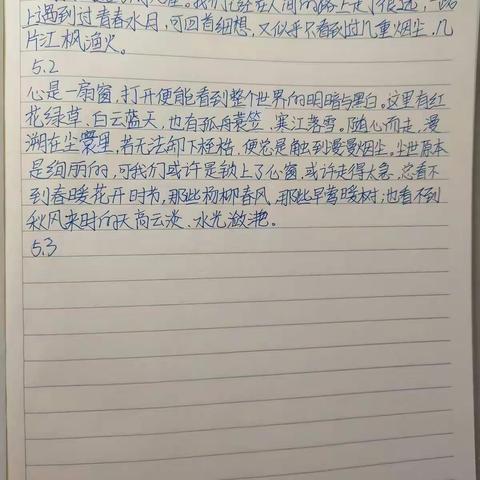 我们已经在人间的路上走了很远,一路
上遇到过青春水月,可回首细想,又似乎只看到过几重烟尘,几
片江枫渔火。
5.2
心是一扇窗,打开便能看到整个世界的明暗与黑白。这里有红
花绿草、白云蓝天,也有孤舟蓑笠、寒江落雪。随心而走,漫
溯在尘寰里,若无法卸下桎梏,便总是触到漫漫烟尘。尘世原本
是绚丽的,可我们或许是锁上了心窗,或许走得太急,总看不
到春暖花开时节,那些杨柳春风,那些早莺暖树;也看不到
秋风来时的天高云淡、水光潋滟。
5.3